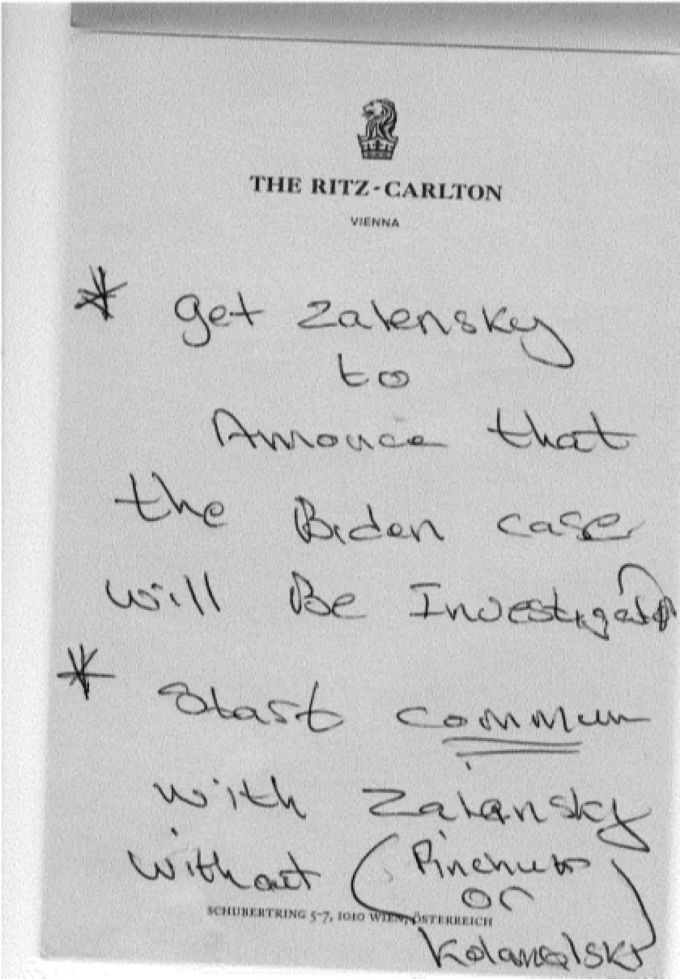 THE RITZ-CARLTON
VIENNA
* get Zalensky
to
Annouce that
the Biden case
will Be Investigated
* start commun
with Zalansky
without (Pinchuk
or
SCHUBERTRING 5-7, 1010 WIEN, ÖSTERREICH
Kolamoisky)